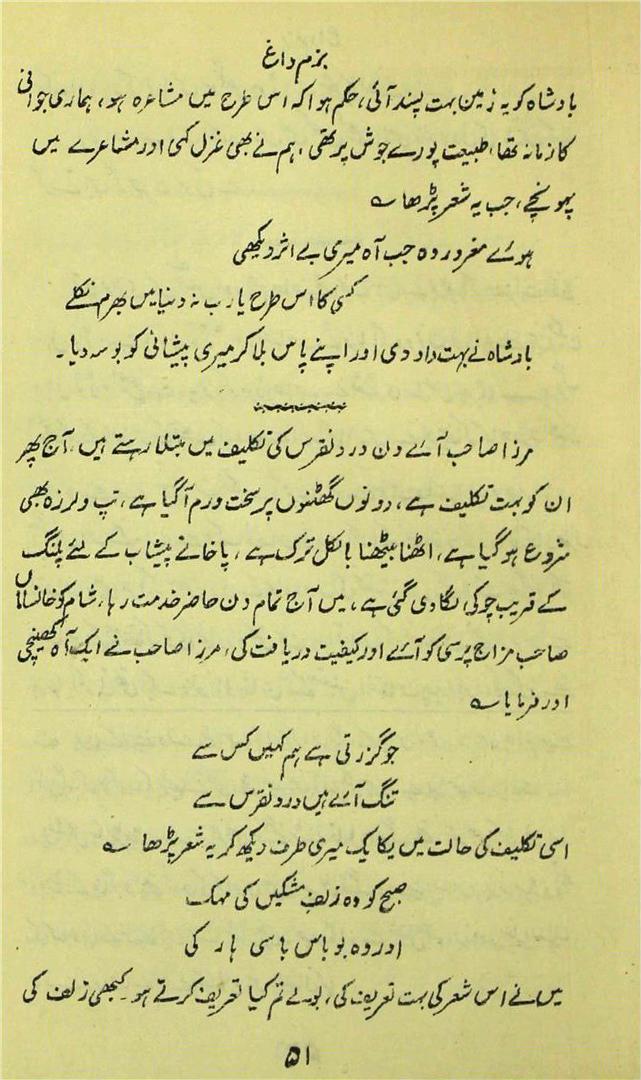 بزم داغ
بادشاہ کو یہ زمین بہت پسند آئی، حکم ہوا کہ اس طرح میں مشاعرہ ہو، ہماری جوانی
کا زمانہ تھا، طبیعت پورے جوش پر تھی، ہم نے بھی غزل کہی اور مشاعرے میں
پہونچے، جب یہ شعر پڑھا ؎
ہوئے مغرور وہ جب آہ میری بے اثر دیکھی
کسی کا اس طرح یارب نہ دنیا میں بھرم نکلے
بادشاہ نے بہت داد دی اور اپنے پاس بلا کر میری پیشانی کو بوسہ دیا۔
مرزا صاحب آئے دن درد نقرس کی تکلیف میں مبتلا رہتے ہیں۔ آج پھر
ان کو بہت تکلیف ہے، دونوں گھٹنوں پر سخت ورم آگیا ہے، تپ و لرزہ بھی
شروع ہو گیا ہے، اٹھنا بیٹھنا بالکل ترک ہے، پاخانے پیشاب کے لئے پلنگ
کے قریب چوکی لگا دی گئی ہے، میں آج تمام دن حاضر خدمت رہا، شام کو خانساماں
صاحب مزاج پرسی کو آئے اور کیفیت دریافت کی، مرزا صاحب نے ایک آہ کھینچی
اور فرمایا ؎
جو گزرتی ہے ہم کہیں کس سے
تنگ آئے ہیں درد نقرس سے
اسی تکلیف کی حالت میں یکایک میری طرف دیکھ کر یہ شعر پڑھا ؎
صبح کو وہ زلفِ مشکیں کی مہک
اور وہ بو باس باسی ہار کی
میں نے اس شعر کی بہت تعریف کی، بولے تم کیا تعریف کرتے ہو۔ کبھی زلف کی
۵۱